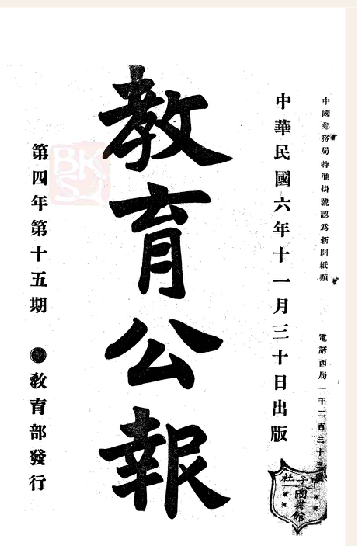 中國郵務局特准掛號認為新聞紙類
電話西局一千二百三十三號
中華民國六年十一月三十日出版
教育公報
第四年第十五期 ●教育部發行
BKS